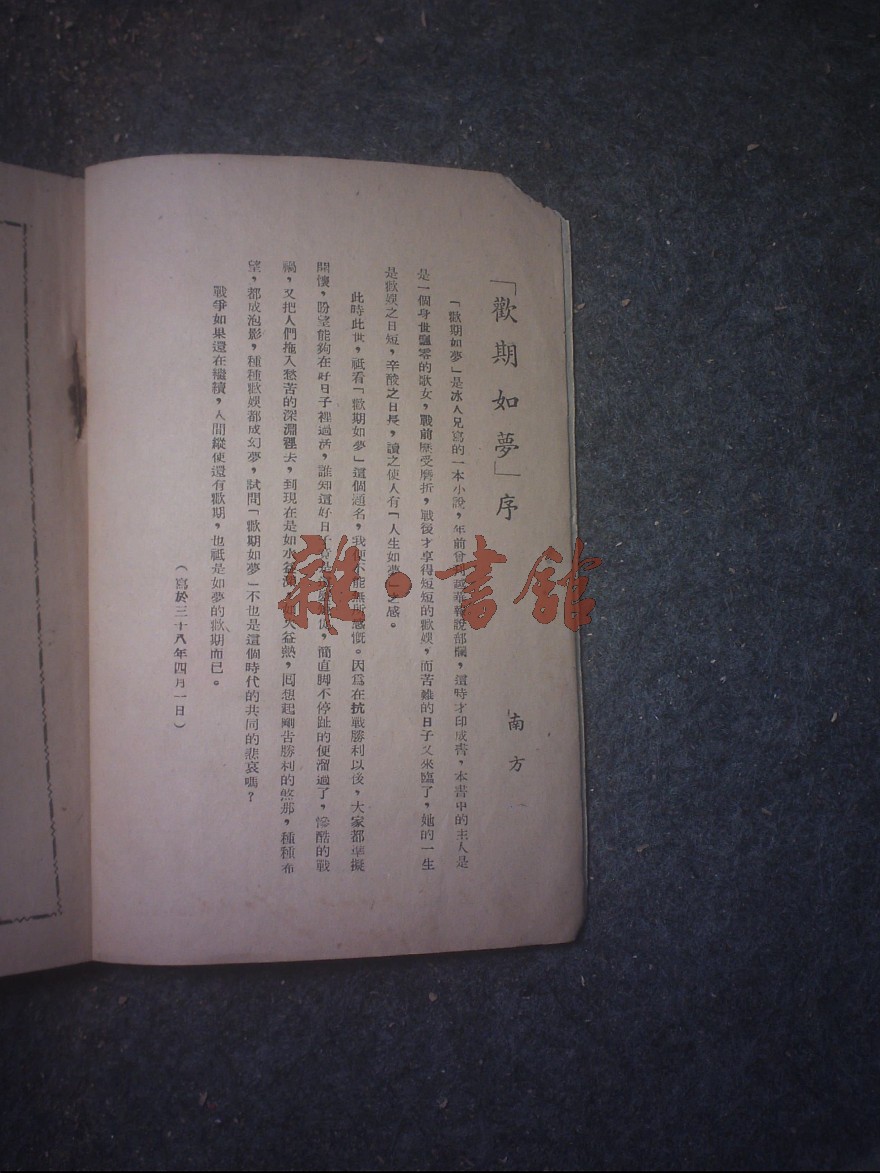 「歡期如夢」序
南方
「歡期如夢」是冰人兄寫的一本小說，年前曾刊華說部欄，這時才印成書，本書中的主人是
是一個身世飄零的歌女，戰前歷受磨折，戰後才享得短短的歡娛，而苦難的日子又來臨了，她的一生
是歡娛之日短，辛酸之日長，讀之使人有「人生如夢」之感。
此時此世，祗看「歡期如夢」這個題名，我便不能無所感慨。因爲在抗戰勝利以後，大家都準擬
開懷，盼望能夠在好日子裡過活，誰知這好日子，簡直脚不停趾的便溜過了，慘酷的戰
禍，又把人們拖入愁苦的深淵裡去，到現在是如水益深，如火益熱，囘想起剛告勝利的煞那，種種布
望，都成泡影，種種歡娛都成幻夢，試問「歡期如夢」不也是這個時代的共同的悲哀嗎？
戰爭如果還在繼續，人間縱使還有歡期，也祗是如夢的歡期而已。
（寫於三十八年四月一日）
雜·書館